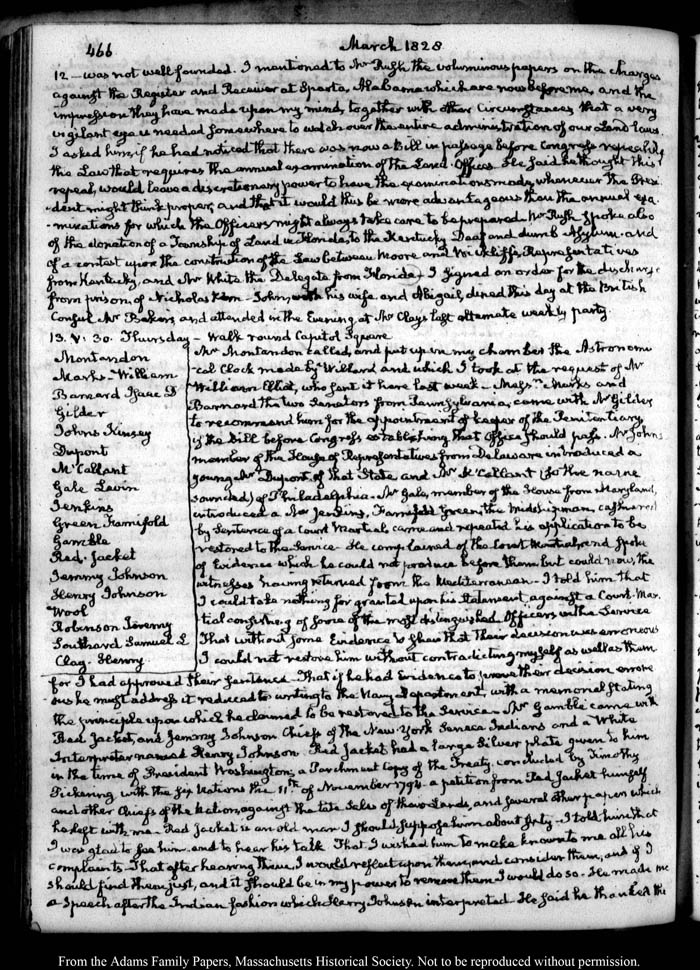 466
March 1828
12 — was not well founded. I mentioned to Mr Rush the voluminous papers on the charges
against the Register and Receiver at Sparta, Alabama which are now before me, and the
impression they have made upon my mind, together with other Circumstances, that a very
vigilant eye is needed somewhere to watch over the entire administration of our Land laws.
I asked him, if he had noticed that there was now a Bill in passage before Congress repealing
the Law that requires the annual examination of the Land Offices. He said he thought this
repeal, would leave a discretionary power to have the examinations made, whenever the Presi-
dent might think proper, and that it would thus be more advantageous than the annual exa-
minations for which the Officers might always take care to be prepared. Mr Rush spoke also
of the donation of a Township of Land in Florida, to the Kentucky Deaf and dumb Asylum and
of a contest upon the construction of the Law between Moore and Wickliffe, Representatives
from Kentucky, and Mr White the Delegate from Florida. I signed an order for the discharge
from prison, of Nicholas Kern - John, with his wife and Abigail, dined this day at the British
Consul Mr Baker's, and attended in the Evening, at Mr Clay's last alternate weekly party.
13. V. 30. Thursday - Walk round Capitol Square
Montandon
Marks - William
Barnard Isaac D
Gilder
Johns Kinsey
Dupont
McCallant
Gale Levin
Jenkins
Green Farnifold
Gamble
Red. Jacket
Jemmy Johnson
Henry Johnson
Wool
Robinson Jeremy
Southard Samuel L
Clay. Henry
Mr Montandon called, and put up in my chamber the Astronomi-
cal Clock made by Willard and which I took at the request of Mr
William Elliot, who sent it here last week - Messrs Marks and
Barnard the two Senators from Pennsylvania, came with Mr Gilder
to recommend him for the appointment of keeper of the Penitentiary
if the Bill before Congress establishing that Office should pass. Mr Johns
member of the House of Representatives from Delaware introduced a
young Mr Dupont, of that State and Mr McCallant (so the name
sounded) of Philadelphia. Mr Gale, member of the House from Maryland,
introduced a Mr Jenkins, Farnifold Green, the Midshipman, cashiered
by Sentence of a Court Martial, came and repeated his application to be
restored to the Service. He complained of the Court Martial, and spoke
of Evidence which he could not produce before them but could now, the
witnesses having returned from the Mediterranean. I told him that
I could take nothing for granted upon his Statement, against a Court-Mar-
tial consisting of some of the most distinguished Officers in the Service
That without some Evidence to shew that their decision was erroneous
I could not restore him without contradicting myself as well as them
for I had approved their Sentence. That if he had Evidence to prove their decision errone-
ous he must address it reduced to writing to the Navy Department, with a memorial stating
the principle upon which he claimed to be restored to the Service. Mr Gamble came with
Red Jacket, and Jemmy Johnson Chiefs of the New York Seneca Indians and a White
Interpreter named Henry Johnson. Red Jacket had a large Silver plate given to him
in the time of President Washington; a Parchment Copy of the Treaty, concluded by Timothy
Pickering with the Six Nations the 11th of November 1794 - a petition from Red Jacket himself
and other Chiefs of the Nation, against the late Sales of their Lands, and several other papers which
he left with me. Red Jacket is an old man I should suppose him about sixty - I told him that
I was glad to see him and to hear his talk. That I wished him to make known to me all his
complaints. That after hearing them, I would reflect upon them, and consider them, and if I
should find them just, and it should be in my power to remove them I would do so. He made me
a Speech after the Indian fashion which Henry Johnson interpreted. He said he thanked the
From the Adams Family Papers, Massachusetts Historical Society. Not to be reproduced without permission.